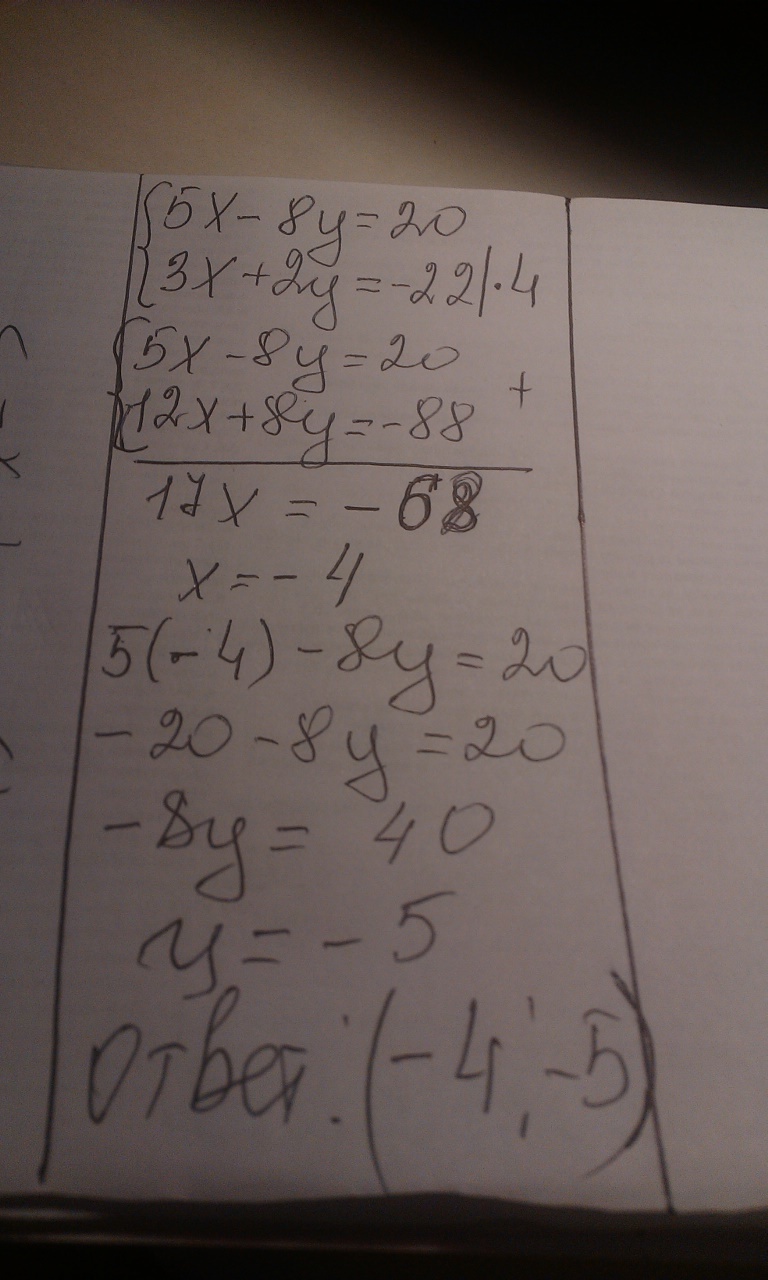 {5x-8y=20
{3x+2y=-22|·4
{5x-8y=20
+
{12x+8y=-88
17x=-68
x=-4
5(-4)-8y=20
-20-8y=20
-8y=40
y=-5
Ответ:(-4;-5)